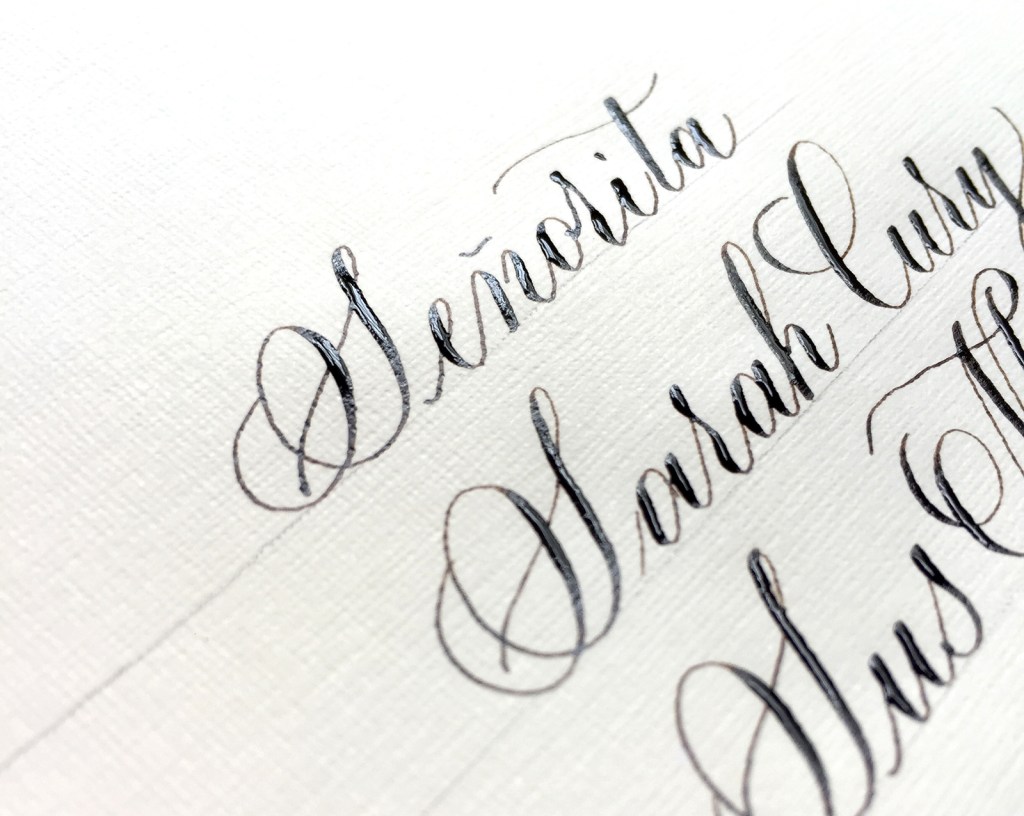 Señorita
Sarah Cusy
Sus